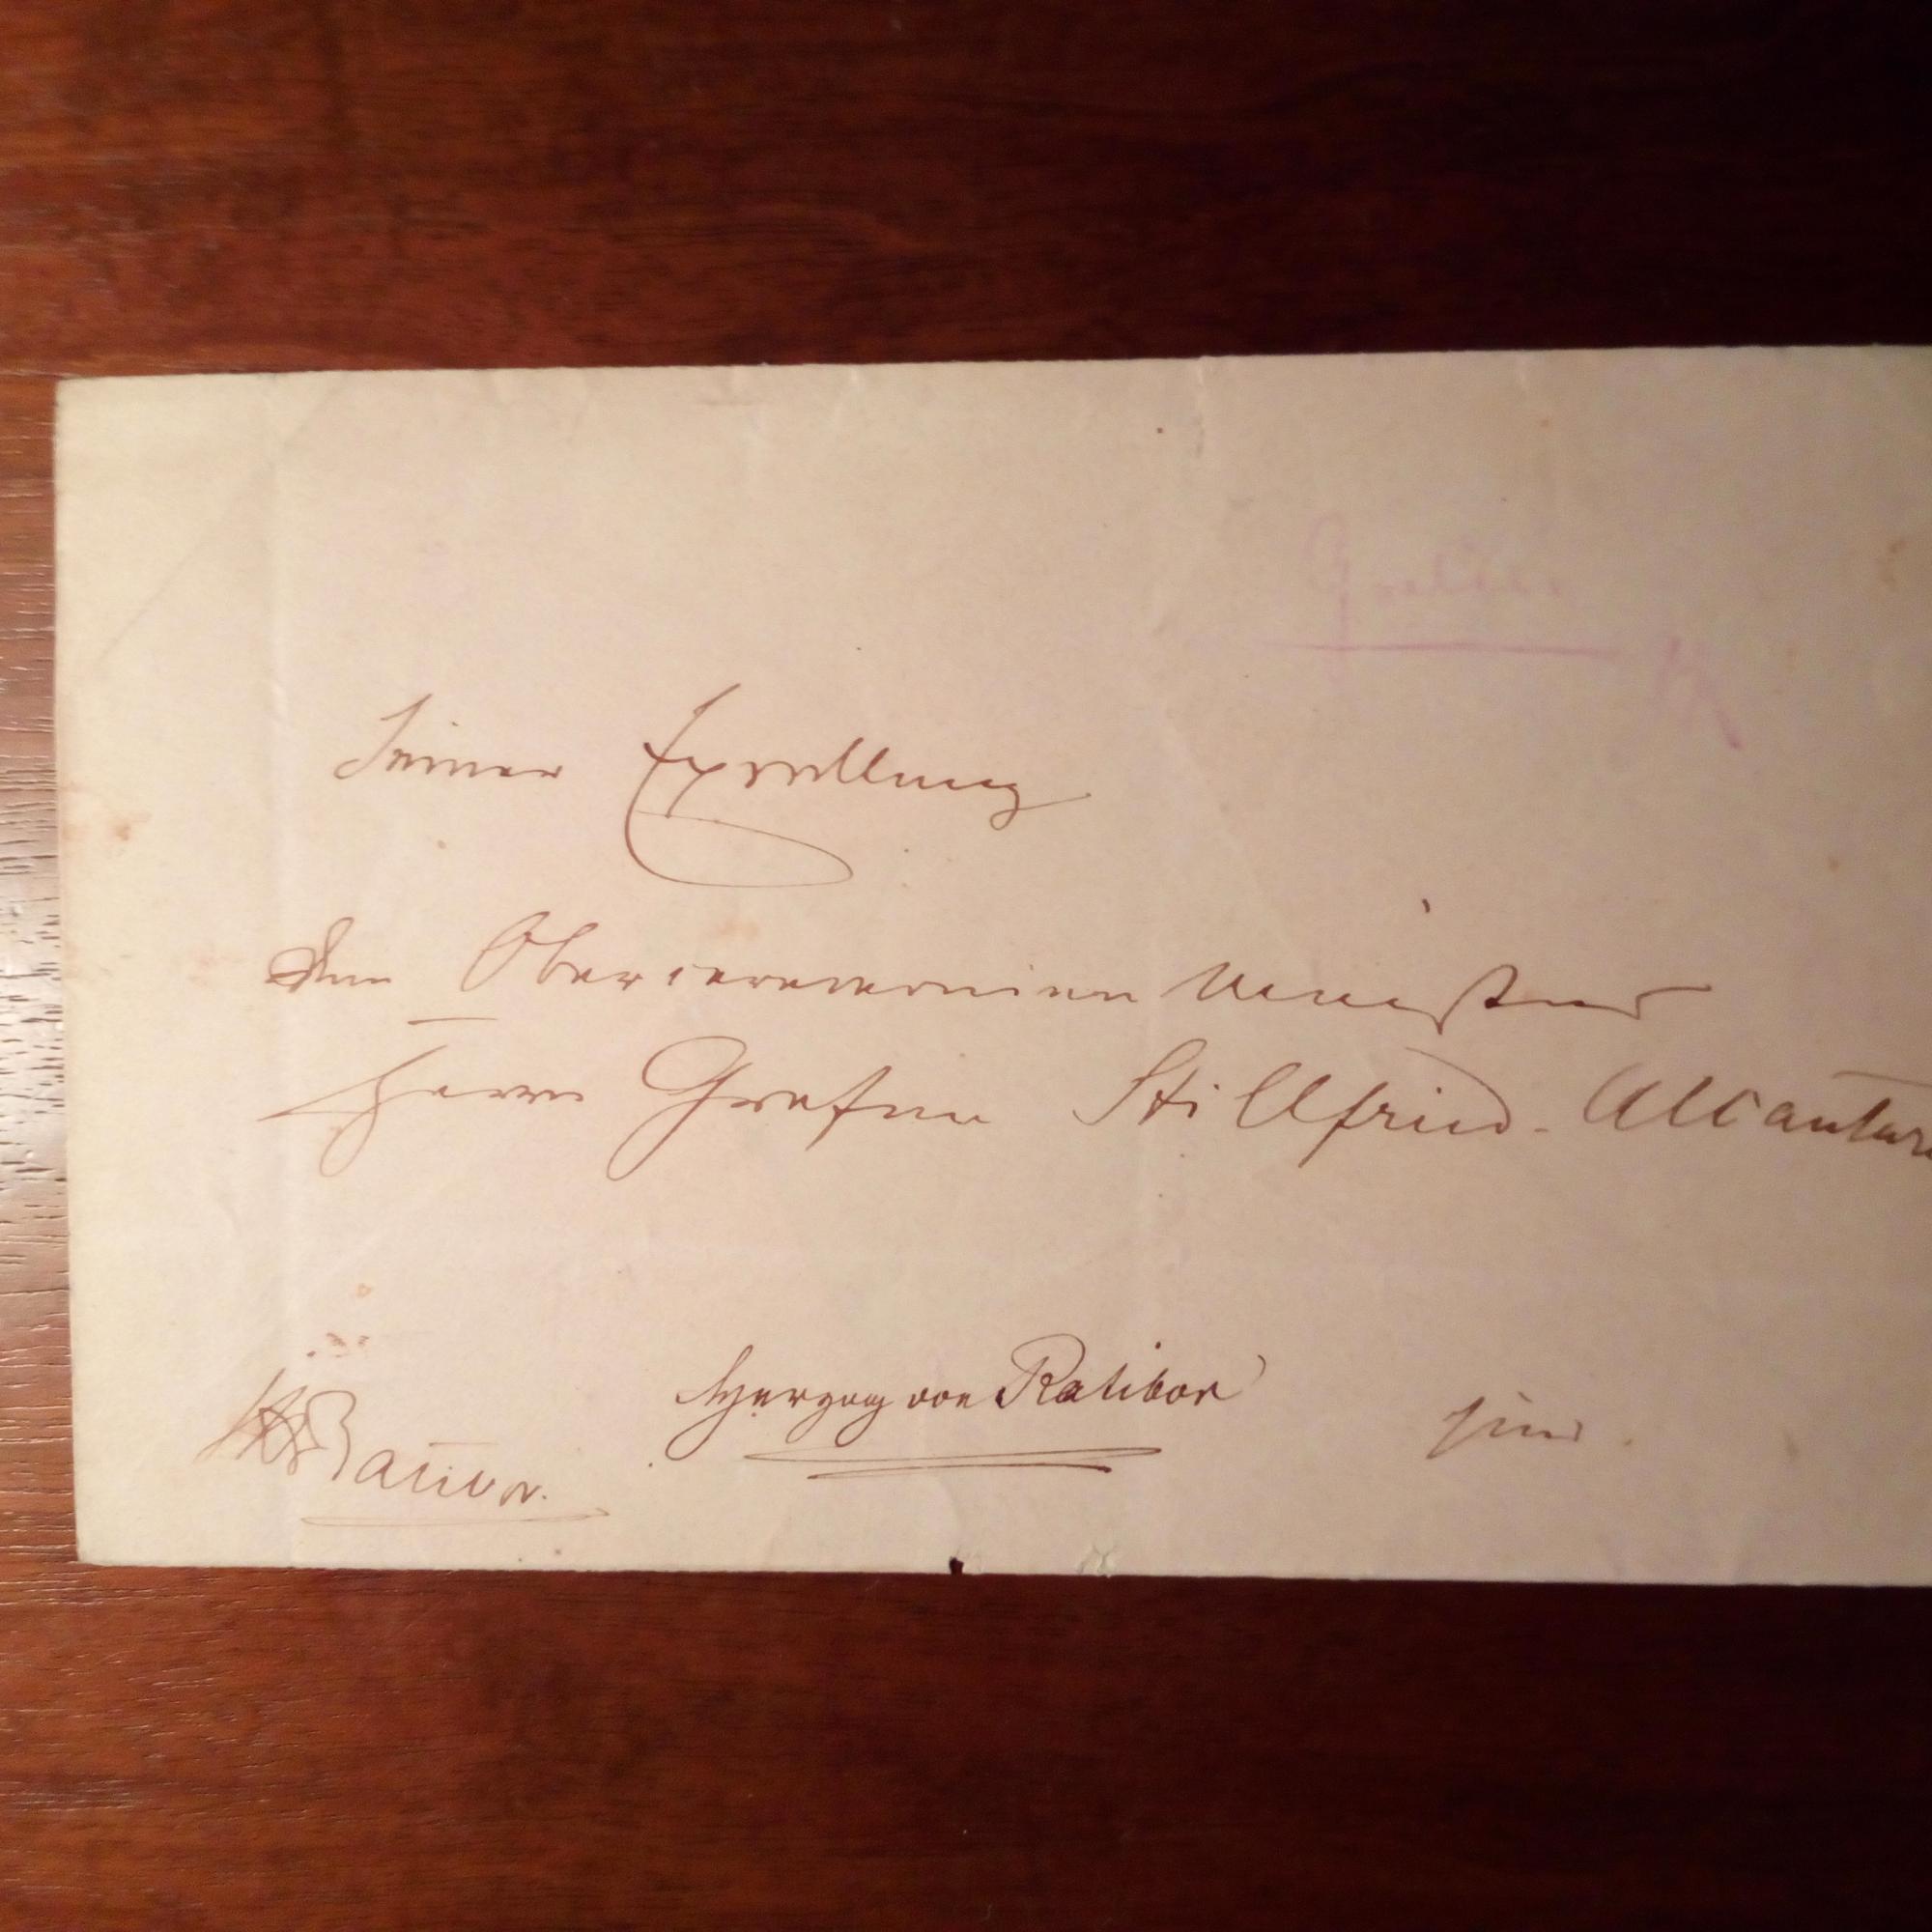 Seiner Excellenz
dem Oberceremonien Meister
Herrn Grafen Stillfried-Alcantara
Herzog von Ratibor
hier.